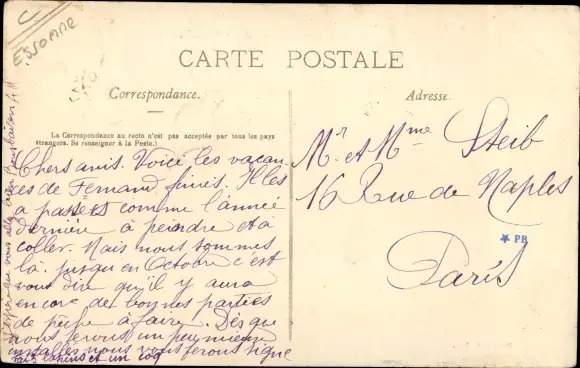 Essonne
CARTE POSTALE
Correspondance.
Adresse.
La Correspondance au recto n'est pas acceptée par tous les pays
étrangers. Se renseigner à la Poste.)
Chers amis. Voici les vacan-
ces de Fernand finies. Il les
a passées comme l'année
dernière à peindre et à
coller. Mais nous sommes
là jusqu'en Octobre c'est
vous dire qu'il y aura
encore de bonnes parties
de pêche à faire. Dès que
nous serons un peu mieux
installés nous vous ferons signe
lapins et un coq
J'espère que vous allez
Mr et Mme Steib
16 Rue de Naples
Paris
PR